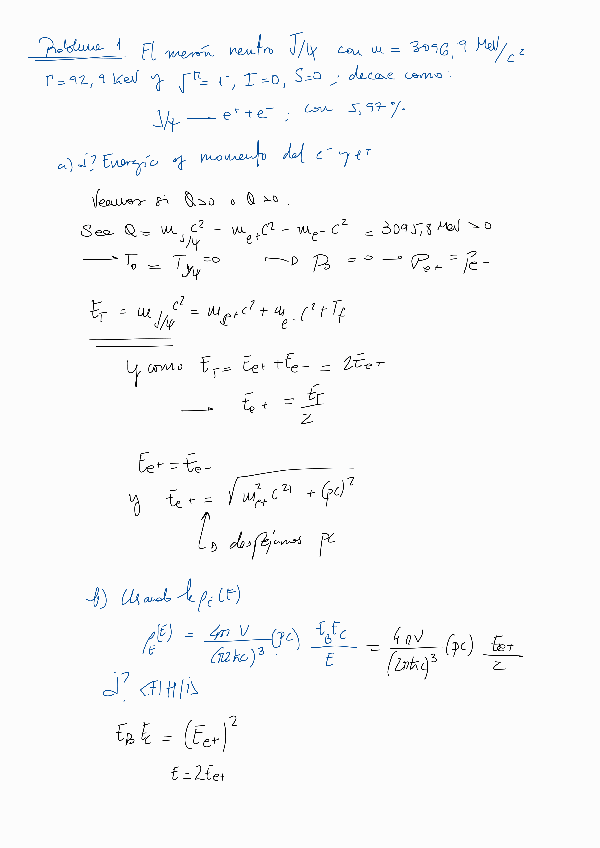 Problema 1 El mesón neutro J/ψ con m = 3096,9 MeV/c²
Γ=92,9 KeV y J^π = 1⁻, I=0, S=0, decae como:
J/ψ → e⁺ + e⁻, con 5,97%
a) d? Energía y momento del e⁻ y e⁺
Veamos si Q>0 o Q<0.
Sea Q = m_{J/ψ} c² - m_{e+} c² - m_{e-} c² = 3095,8 MeV > 0
→ T₀ = T_{J/ψ} = 0 → P₀ = 0 → P_{e+} = P_{e-}
E_T = m_{J/ψ} c² = m_{e+} c² + m_{e-} c² + T_f
y como E_T = E_{e+} + E_{e-} = 2E_{e+}
→ E_{e+} = E_T/2
E_{e+} = E_{e-}
y E_{e+} = √(m²_{e+} c⁴ + (pc)²)
→ despejamos pc
b) Usando la ρ_E(E)
ρ_E(E) = 4π V/(2πħc)³ (pc) E_B E_C/E = 4πV/(2πħc)³ (pc) E_{e+}/2
d? <f|H|i>
E_B E_C = (E_{e+})²
E = 2E_{e+}